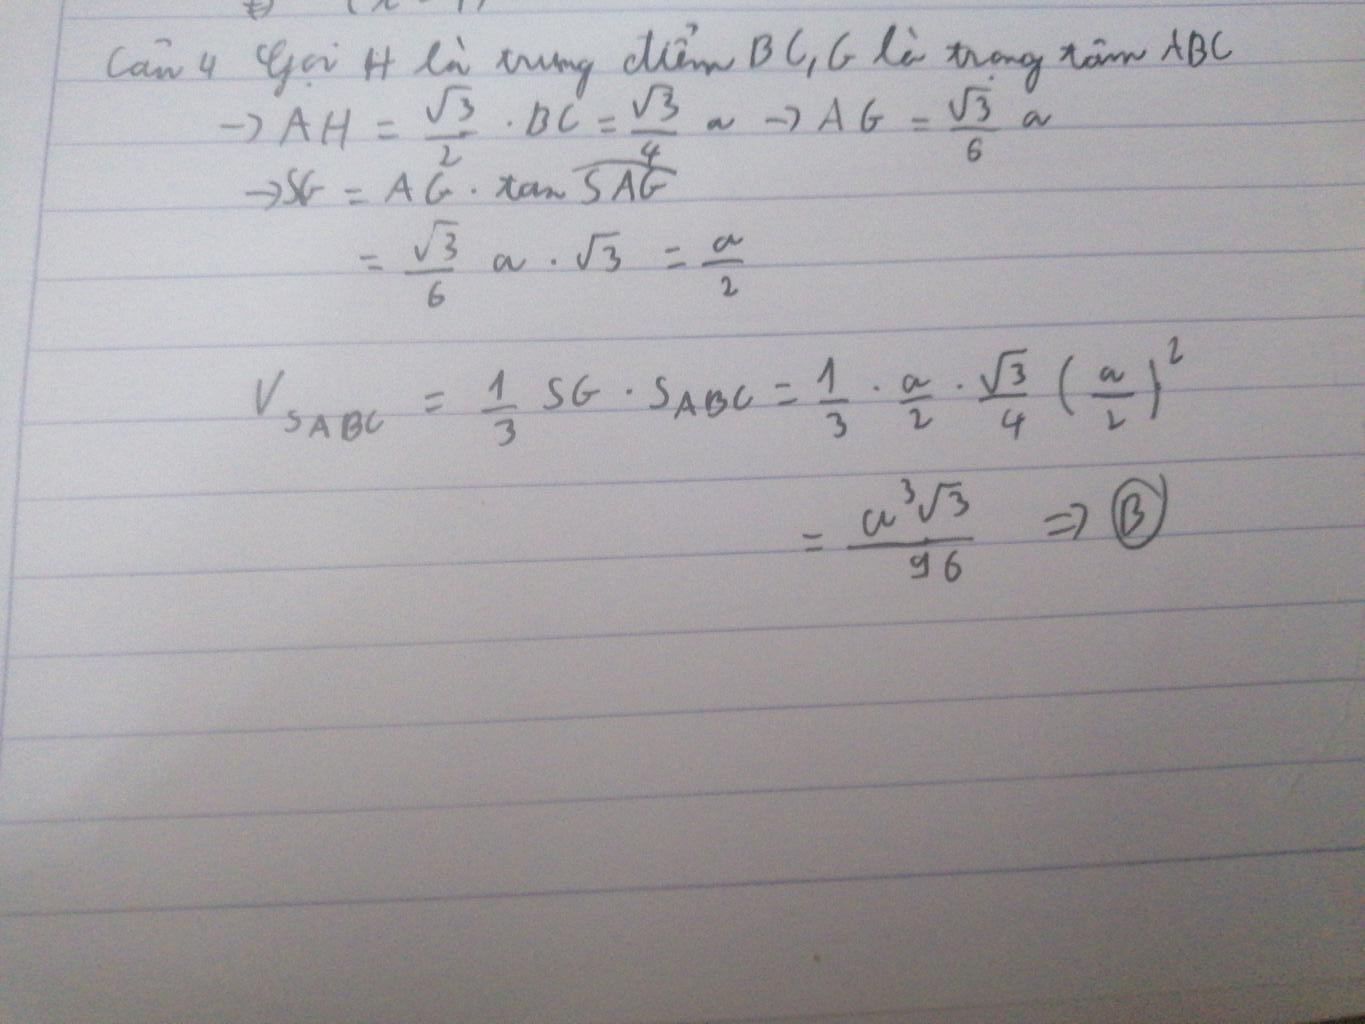 Câu 4 Gọi H là trung điểm BC, G là trọng tâm ABC
→ AH = √3/2 · BC = √3/4 a → AG = √3/6 a
→ SG = AG · tan SAG
= √3/6 a · √3 = a/2
V_SABC = 1/3 SG · S_ABC = 1/3 · a/2 · √3/4 (a/2)²
= a³√3/96 ⇒ B